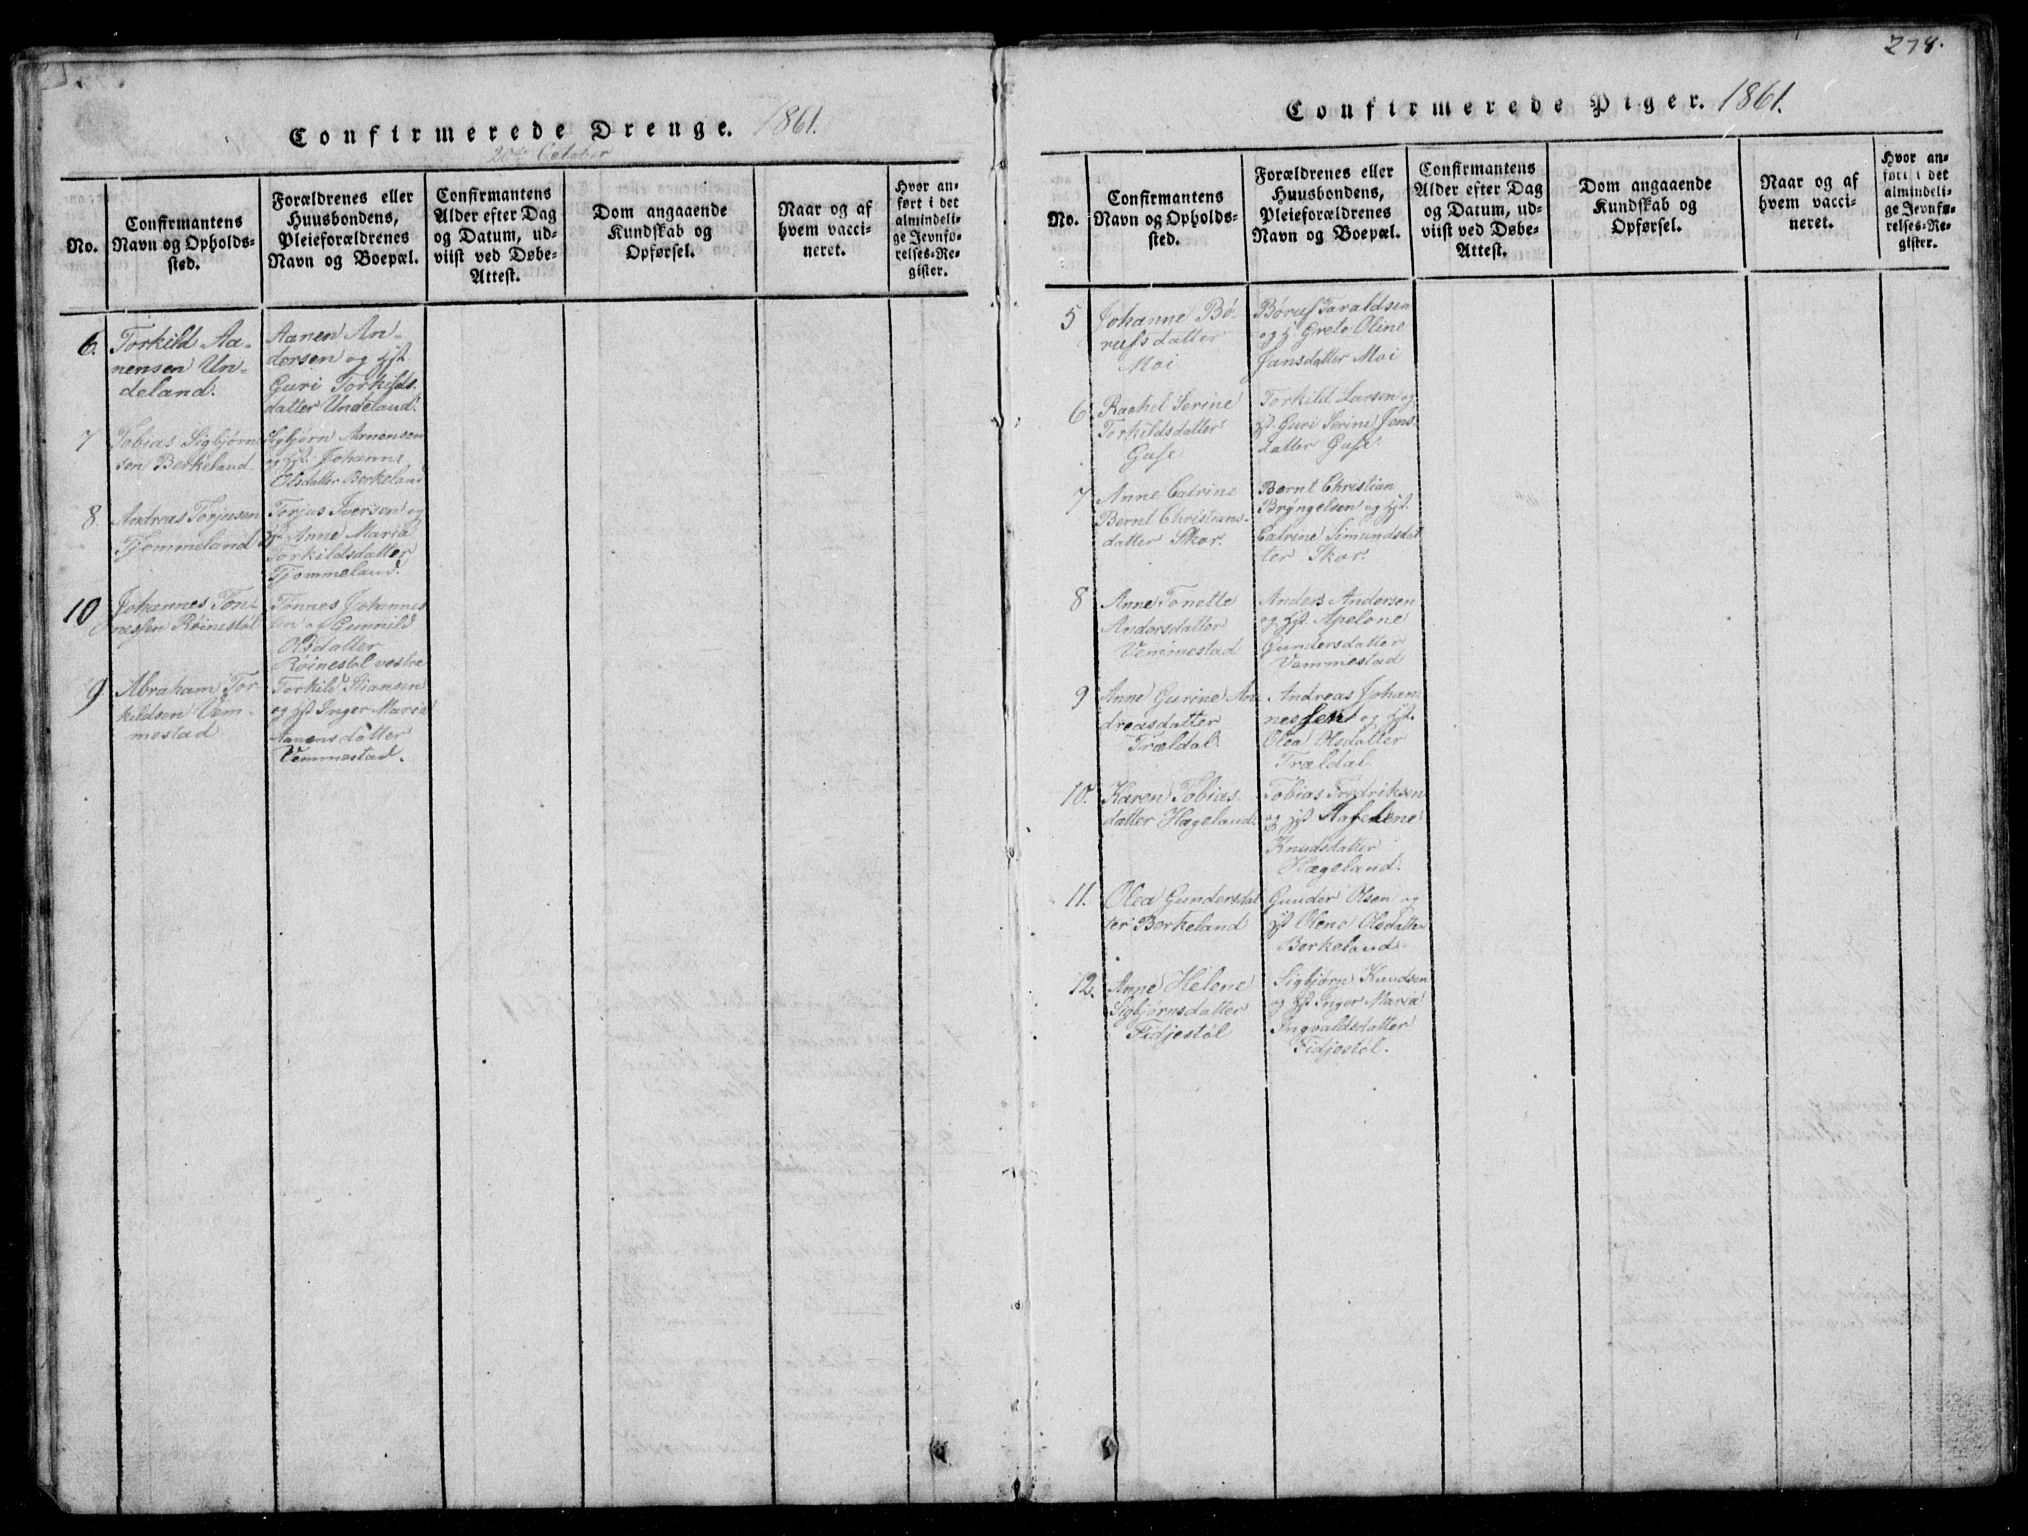 Confirmerede Drenge. 1861.
20de October
No.
Confirmantens
Navn og Opholds-
sted.
Forældrenes eller
Huusbondens,
Pleieforældrenes
Navn og Boepæl.
Confirmantens
Alder efter Dag
og Datum, ud-
viist ved Døbe-
Attest.
Dom angaaende
Kundskab og
Opførsel.
Naar og af
hvem vacci-
neret.
Hvor an-
ført i det
almindeli-
ge Jevnfø-
relses-Re-
gister.
6. Torkild Aa-
nensen Un-
deland.
Aanen An-
dersen og Hst
Guri Torkilds-
datter Undeland.
7 Tobias Sigbjørn-
sen Berkeland
Sigbjørn Aanensen
og Hst. Johanne
Olsdatter Berkeland
8. Andreas Torjusen
Tjommeland
Torjus Iversen og
Hst Anne Maria
Torkildsdatter
Tjommeland.
10 Johannes Tøn-
nessen Røinestøl
Tønnes Johannes
sen af Gunnild
Olsdatter
Røinestøl vestre
9 Abraham Tor-
kildsen Vem-
mestad
Torkild Stiansen
og Hst Inger Maria
Aanensdatter
Vemmestad.
278.
Confirmerede Piger. 1861.
No.
Confirmantens
Navn og Opholds-
sted.
Forældrenes eller
Huusbondens,
Pleieforældrenes
Navn og Boepæl.
Confirmantens
Alder efter Dag
og Datum, ud-
viist ved Døbe-
Attest.
Dom angaaende
Kundskab og
Opførsel.
Naar og af
hvem vacci-
neret.
Hvor an-
ført i det
almindeli-
ge Jevnfø-
relses-Re-
gister.
5 Johanne Bø-
rufsdatter
Moi
Børuf Taraldsen
og H Grete Oline
Jansdatter Moi
6 Rachel Serine
Torkildsdatter
Guse
Torkild Larsen og
Hst. Guri Serine Jons-
datter Guse
7 Anne Catrine
Bernt Christians-
datter Skor.
Bernt Christian
Bryngelsen og Hst.
Catrine Simundsdat
ter Skor.
8 Anne Tonette
Andersdatter
Vemmestad
Anders Andersen
og Hst Apelone
Gundersdatter
Vemmestad
9 Anne Gurine An
dreasdatter
Trældal.
Andreas Johan
nessen og Hst.
Olea Olsdatter
Trældal
10. Karen Tobias-
datter Hægeland.
Tobias Fredriksen
og Hst
Knudsdatter
Hægeland.
11. Olea Gundersdat
ter Berkeland
Gunder Olsen og
Hst Olene Olsdatter
Berkeland.
12. Anne Helene
Sigbjørnsdatter
Fidjestøl
Sigbjørn Knudsen
og Hst Inger Maria
Ingvaldsdatter
Fidjestøl.